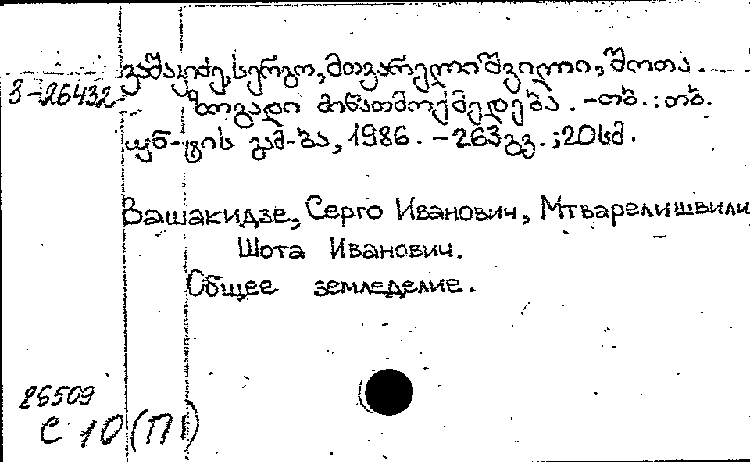 ვაშაკიძე, სერგო, მთვარელიშვილი, შოთა.
3-26432
ზოგადი მიწათმოქმედება. - თბ. : თბ.
უნ-ტის გამ-ბა, 1986. - 263გვ. ; 20სმ.
Вашакидзе, Серго Иванович, Мтварелишвили
Шота Иванович.
Общее земледелие.
26509
С 10 (П1)